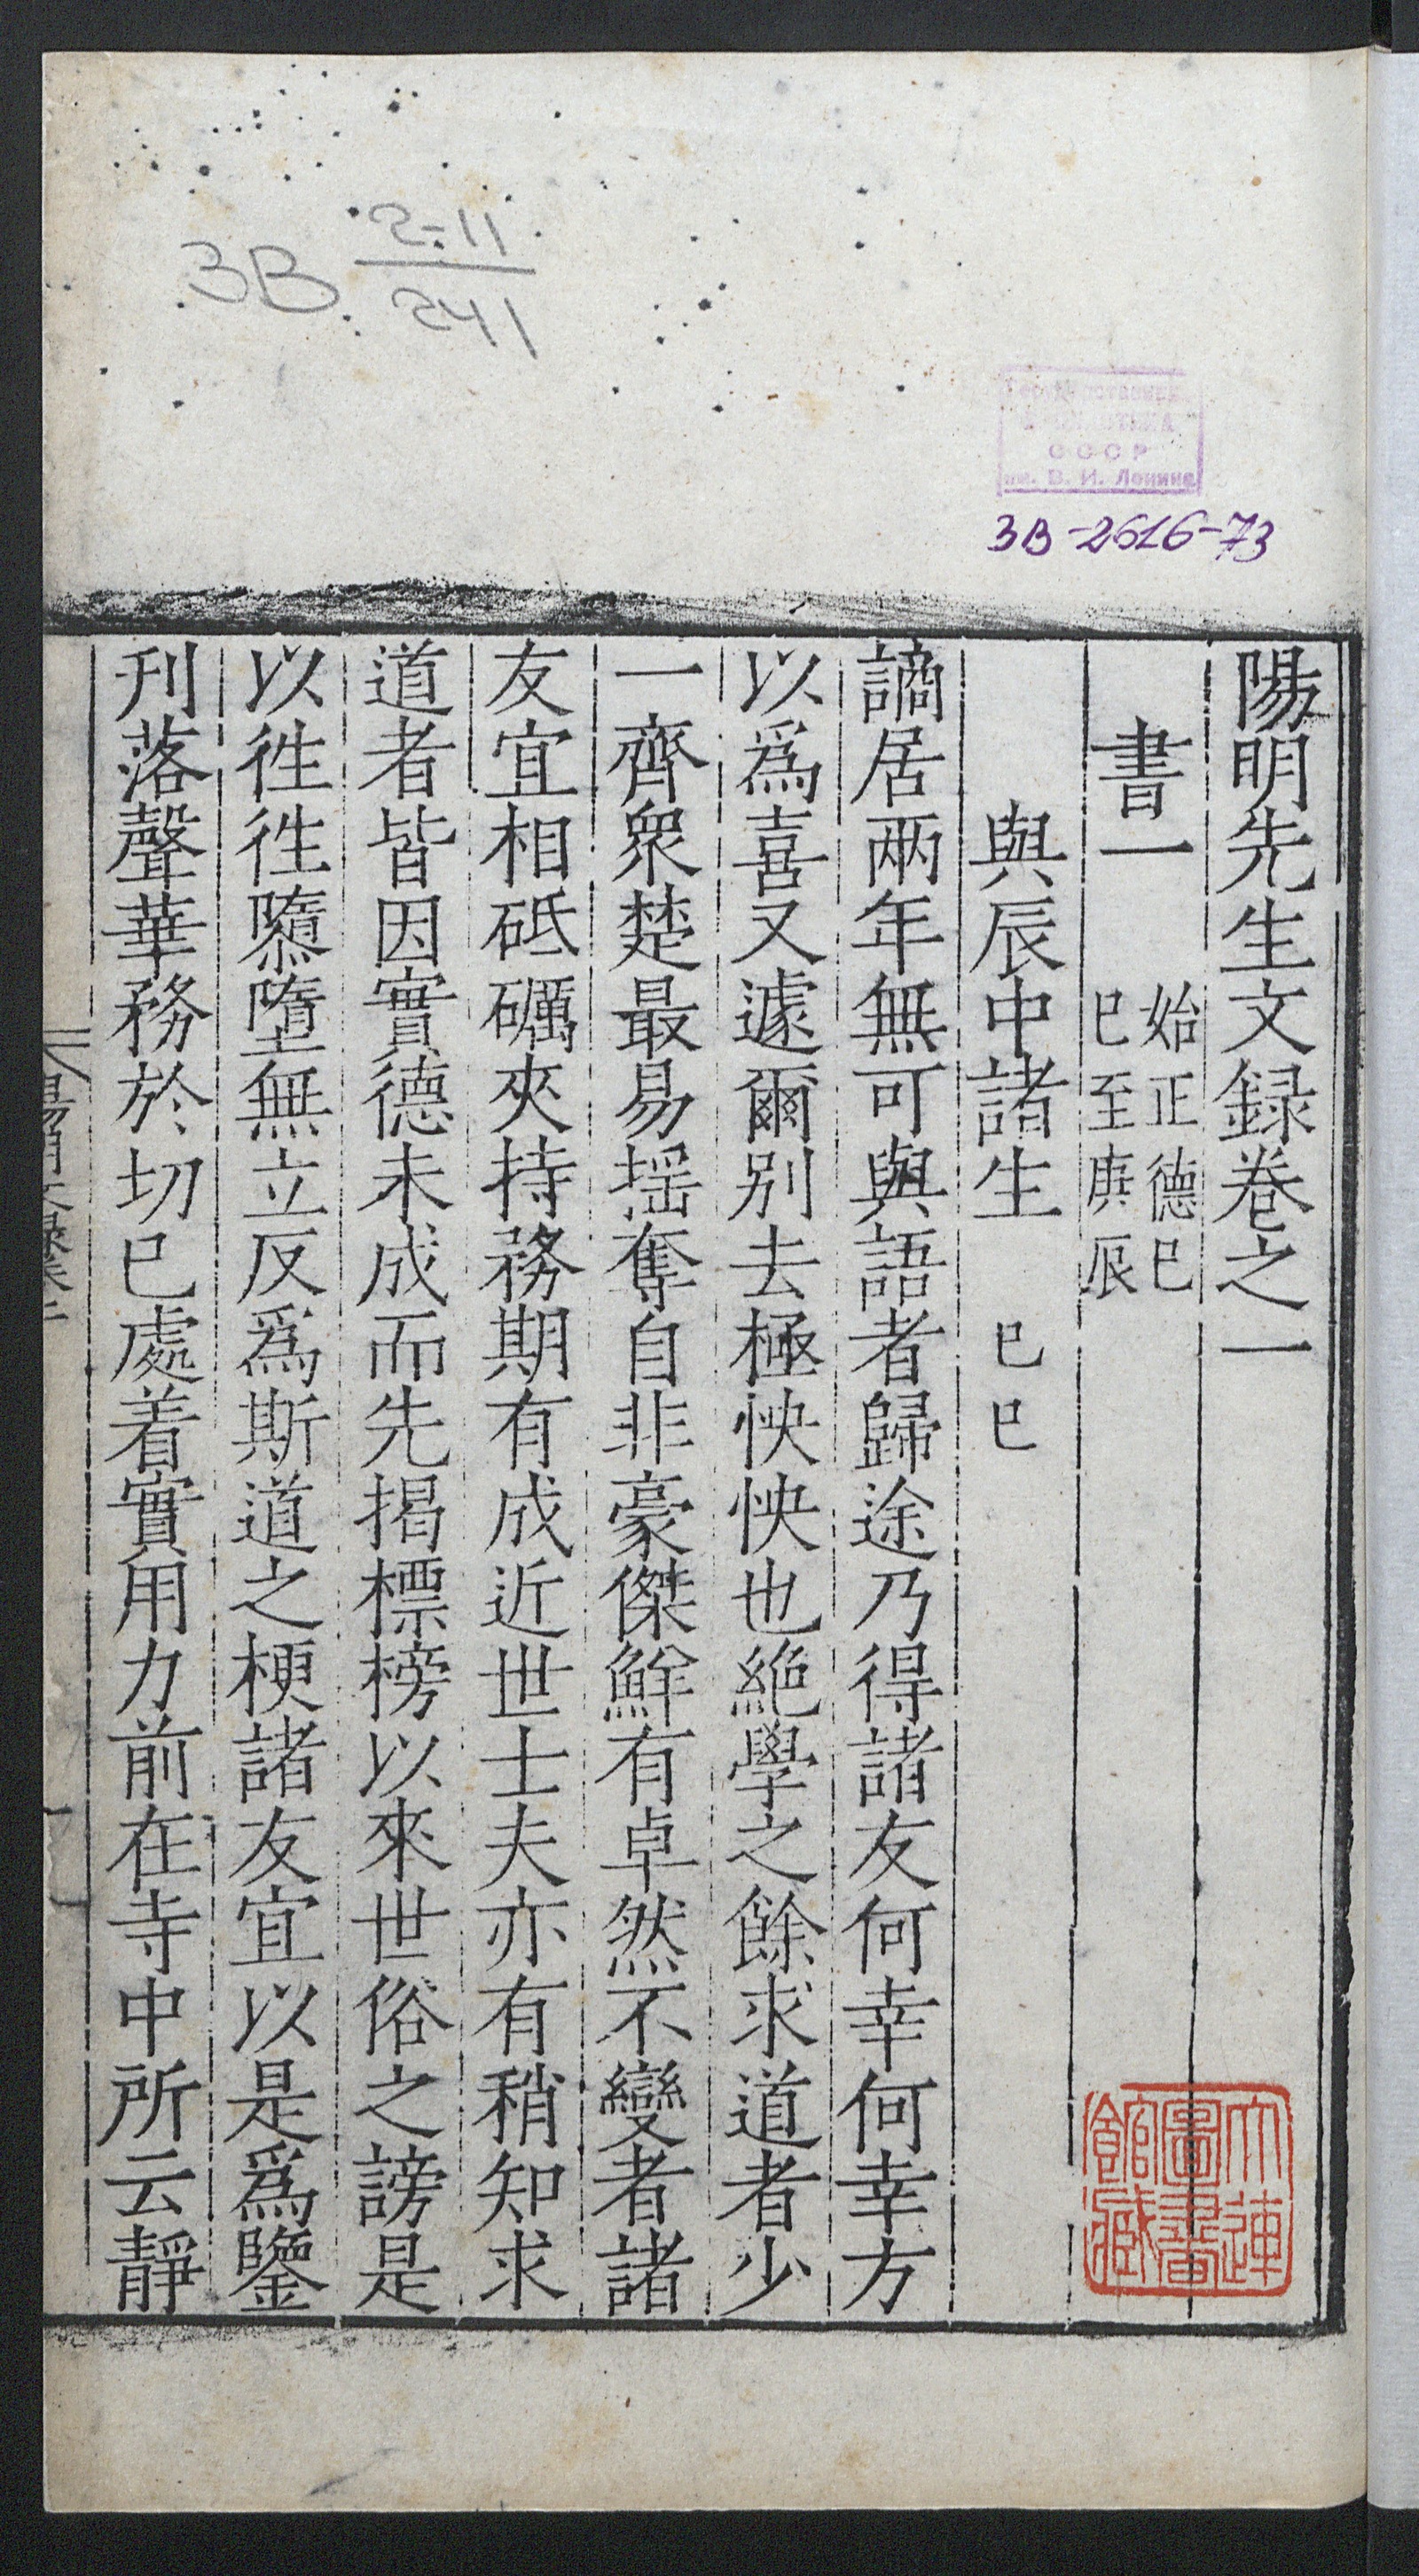 3В 2-11
241
СССР
им. В. И. Ленина
3В-2616-73
陽明先生文録卷之一
書一 始正德己巳至庚辰
與辰中諸生 己巳
謫居兩年無可與語者歸途乃得諸友何幸何幸方
以爲喜又遽爾别去極怏怏也絶學之餘求道者少
一齊衆楚最易揺奪自非豪傑鮮有卓然不變者諸
友宜相砥礪夾持務期有成近世士夫亦有稍知求
道者皆因實德未成而先揭標榜以來世俗之謗是
以徃徃隳墮無立反爲斯道之梗諸友宜以是爲鑒
刋落聲華務於切己處着實用力前在寺中所云靜
大連
圖書
館藏